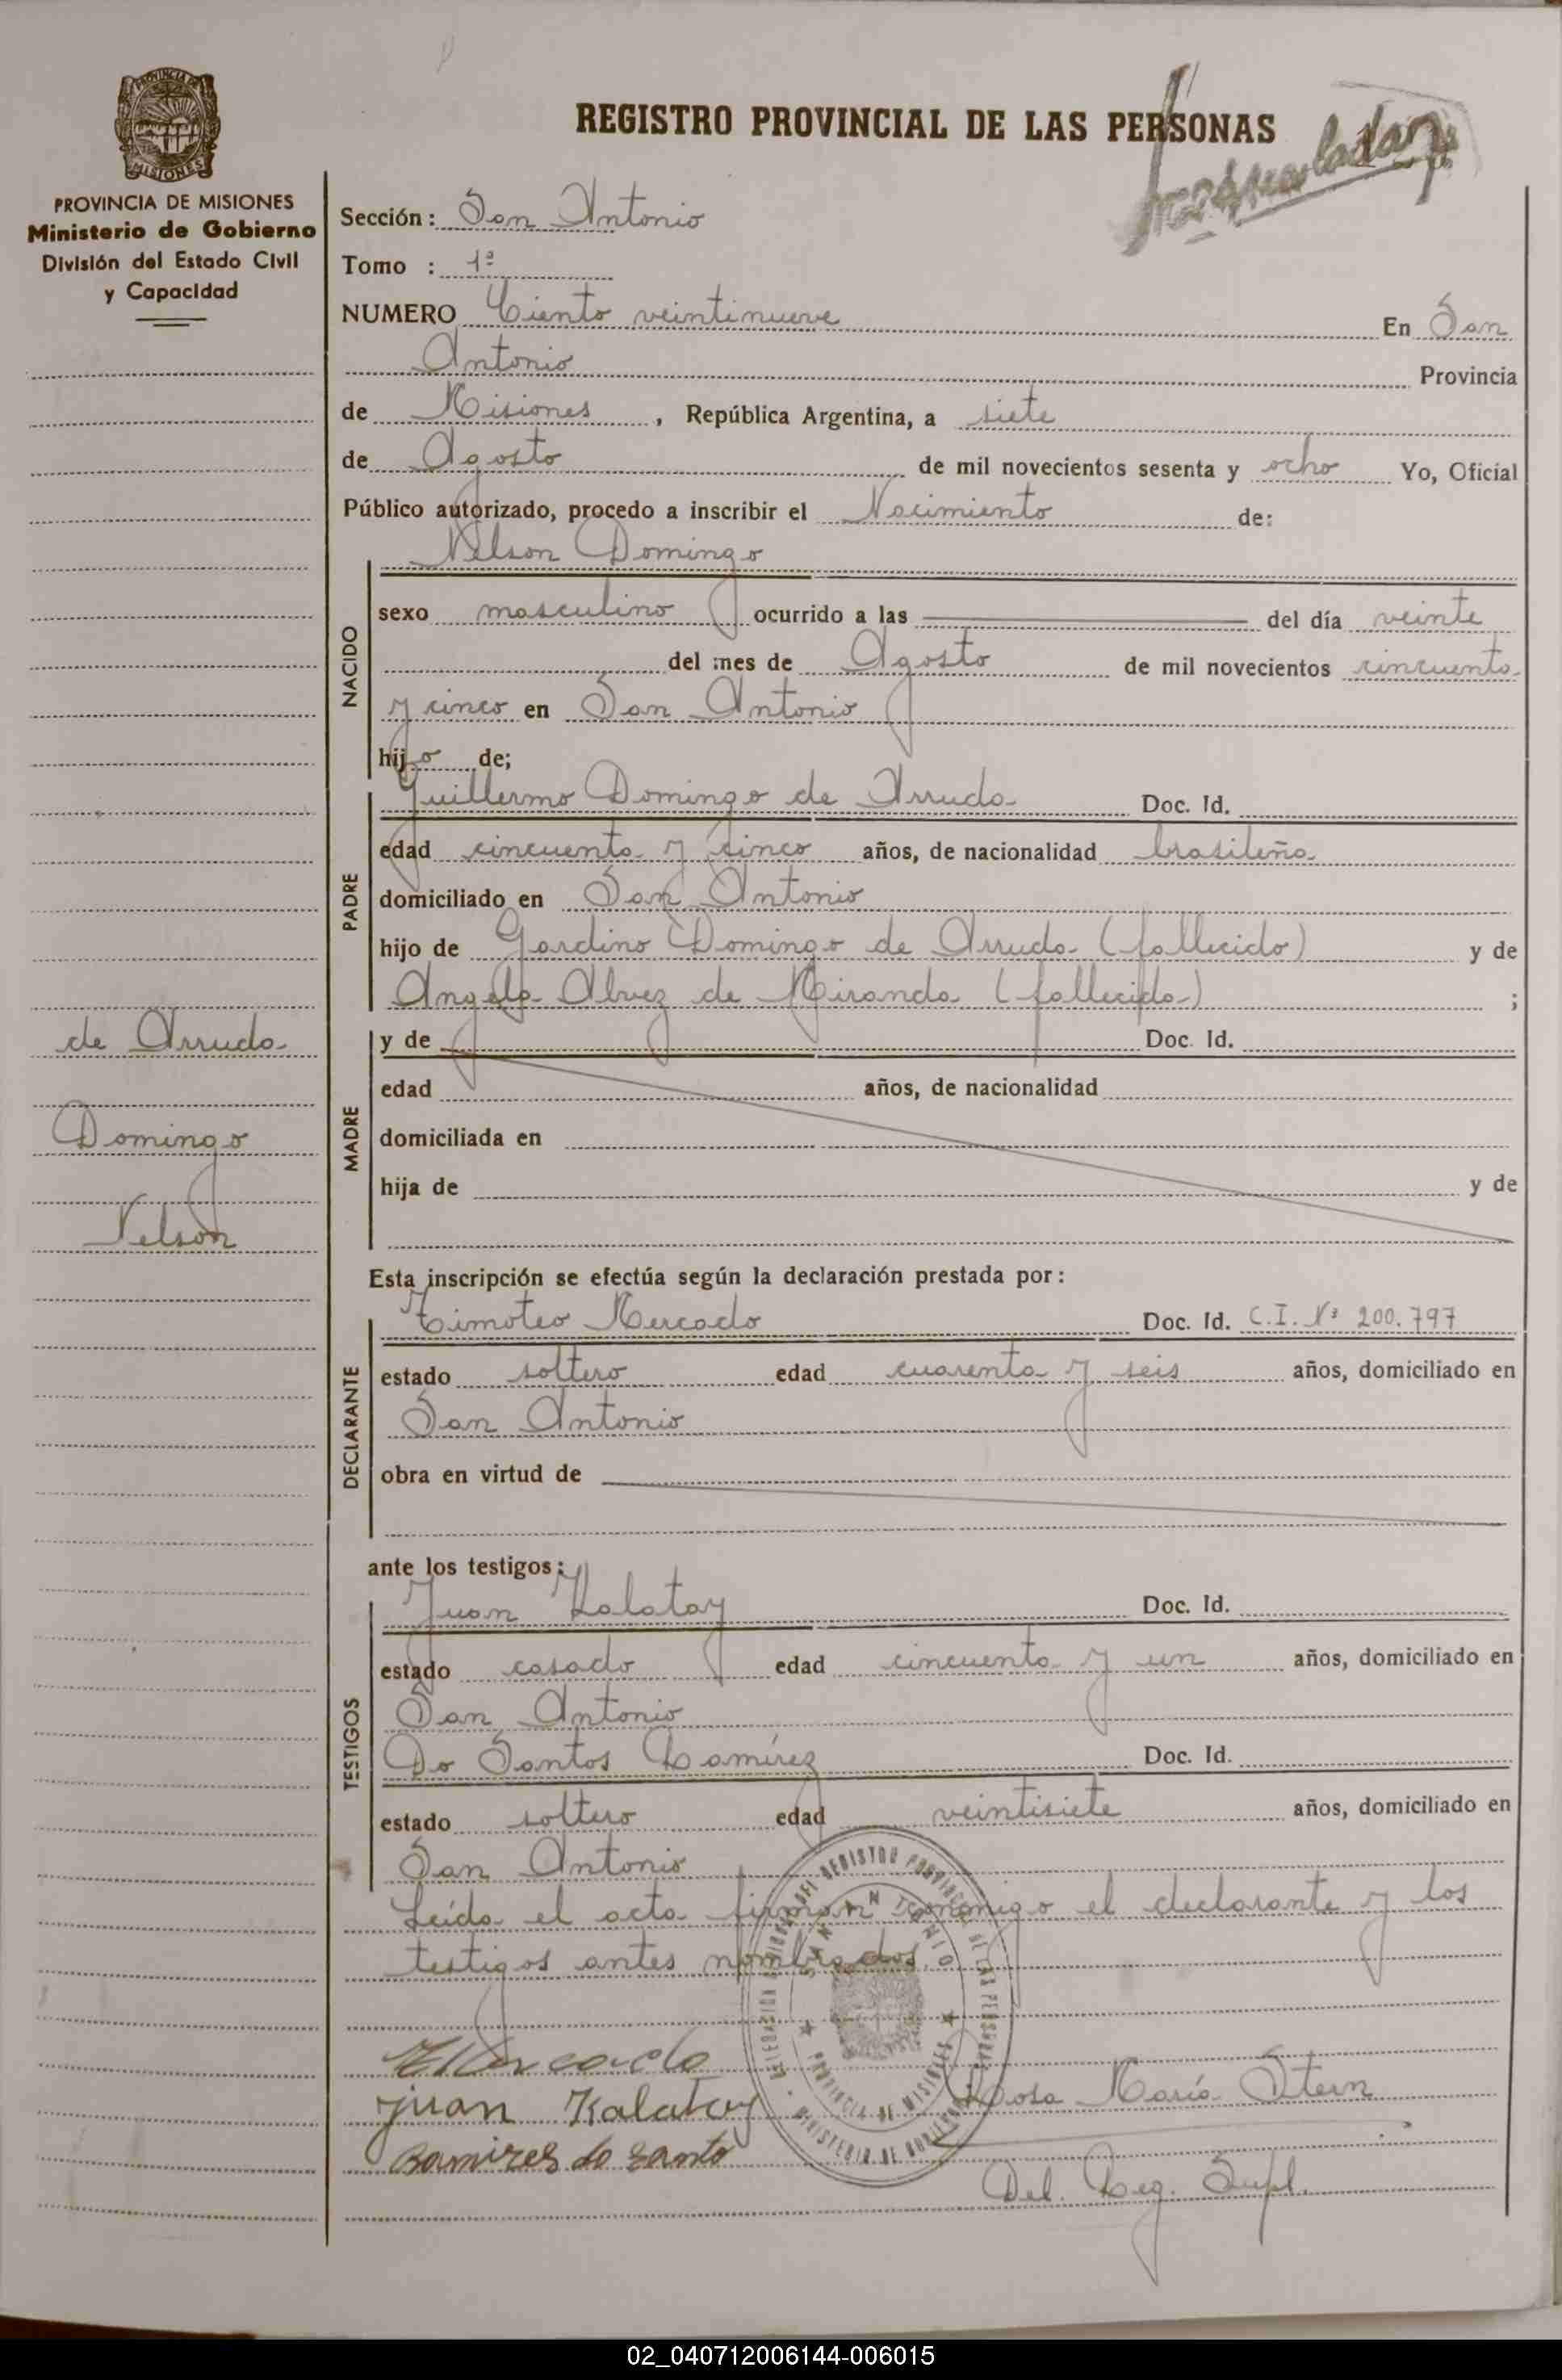 REGISTRO PROVINCIAL DE LAS PERSONAS
PROVINCIA DE MISIONES
Ministerio de Gobierno
División del Estado Civil
y Capacidad
Sección: San Antonio
Tomo : 1º
NUMERO Ciento veintinueve En San
Antonio Provincia
de Misiones, República Argentina, a siete
de Agosto de mil novecientos sesenta y ocho Yo, Oficial
Público autorizado, procedo a inscribir el Nacimiento de:
NACIDO
Nelson Domingo
sexo masculino ocurrido a las del día veinte
del mes de Agosto de mil novecientos cincuenta
y cinco en San Antonio
hijo de;
PADRE
Guillermo Domingo de Arruda Doc. Id.
edad cincuenta y cinco años, de nacionalidad brasileña
domiciliado en San Antonio
hijo de Gardino Domingo de Arruda (fallecido) y de
Angela Alvez de Miranda (fallecida) ;
MADRE
y de Doc. Id.
edad años, de nacionalidad
domiciliada en
hija de y de
de Arruda
Domingo
Nelson
Esta inscripción se efectúa según la declaración prestada por:
DECLARANTE
Timoteo Mercado Doc. Id. C.I. Nº 200.797
estado soltero edad cuarenta y seis años, domiciliado en
San Antonio
obra en virtud de
ante los testigos:
TESTIGOS
Juan Kalatay Doc. Id.
estado casado edad cincuenta y un años, domiciliado en
San Antonio
Do Santos Ramírez Doc. Id.
estado soltero edad veintisiete años, domiciliado en
San Antonio
Leída el acta firman conmigo el declarante y los
testigos antes nombrados.
Mercado
Juan Kalatay
Ramires do Santo
Rosa María Stern
Del. Reg. Supl.
SAN ANTONIO
PROVINCIA DE MISIONES
02_040712006144-006015